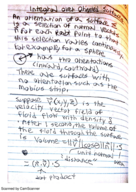 Integrals over Oriented Surfaces
An orientation of a surface is
a selection of normal vectors
for each point to that
this selection varies continuously
for example for a sphere
has two orientations
(inward, outward)
There are surfaces with
no orientation such as the
mobius strip.
Suppose V(x,y,z) is the
velocity vector field of
fluid flow with density 1
the volume of
the fluid through the surface
Volume
unit normal
distance
= (V·n) S
dot product
Scanned by CamScanner